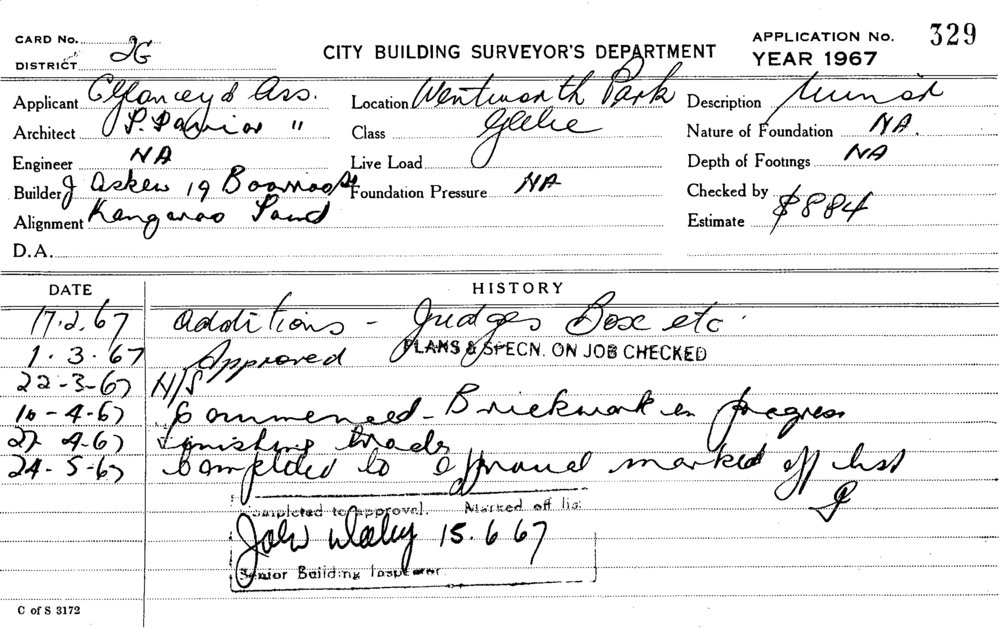 CARD No.
DISTRICT 2G
CITY BUILDING SURVEYOR'S DEPARTMENT
APPLICATION No. 329
YEAR 1967
Applicant Clancey & Ass.
Location Wentworth Park
Description Minor
Architect "
Class Glebe
Nature of Foundation NA.
Engineer NA
Live Load
Depth of Footings NA
Builder J Askew 19
Foundation Pressure NA
Checked by
Alignment Kangaroo
Estimate $884
D.A.
DATE
HISTORY
17.2.67 Additions - Judges Box etc.
1.3.67 Approved PLANS & SPECN. ON JOB CHECKED
22-3-67 N/S
10-4-67 Commenced - Brickwork in progress
27 4-67 Finishing trades
24-5-67 Completed to approval marked off list
Completed to approval. Marked off list
15.6 67
Senior Building Inspector
C of S 3172